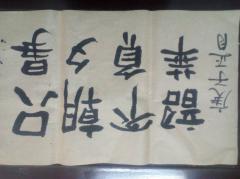 只爭
朝夕
不負
韶華
庚子